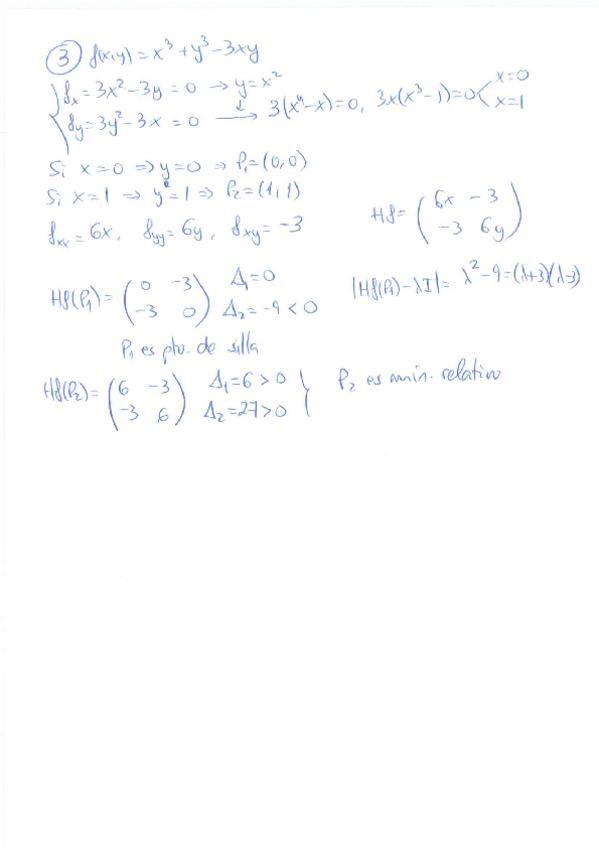 ③ f(x,y) = x³ + y³ - 3xy
fx = 3x² - 3y = 0 → y = x²
fy = 3y² - 3x = 0 → 3(x⁴ - x) = 0, 3x(x³ - 1) = 0 < x = 0
x = 1
Si x = 0 ⇒ y = 0 ⇒ P₁ = (0,0)
Si x = 1 ⇒ y = 1 ⇒ P₂ = (1,1)
fxx = 6x, fyy = 6y, fxy = -3
Hf = ( 6x -3
-3 6y )
Hf(P₁) = ( 0 -3
-3 0 ) Δ₁ = 0
Δ₂ = -9 < 0
|Hf(P₁) - λI| = λ² - 9 = (λ+3)(λ-3)
P₁ es pto. de silla
Hf(P₂) = ( 6 -3
-3 6 ) Δ₁ = 6 > 0
Δ₂ = 27 > 0 } P₂ es mín. relativo